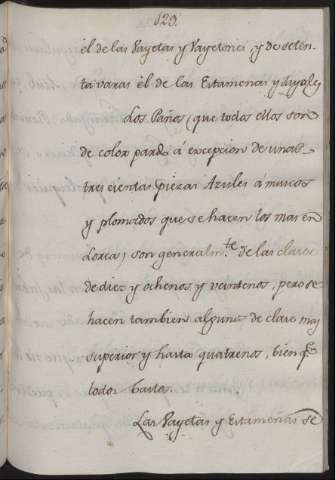 123.
el de las Vayetas y Vayetones, y de seten-
ta varas el de las Estameñas y
Los Paños (que todos ellos son
de color pardo á excepcion de unas
trescientas piezas Azules á
y plomados que se hacen los mas en
Lorca) son generalm.te de las clases
de diez y ochenos y veintenos, pero se
hacen tambien algunos de clase mas
superior y hasta quatrenos, bien q.e
todos bastos.
Las Vayetas y Estameñas se